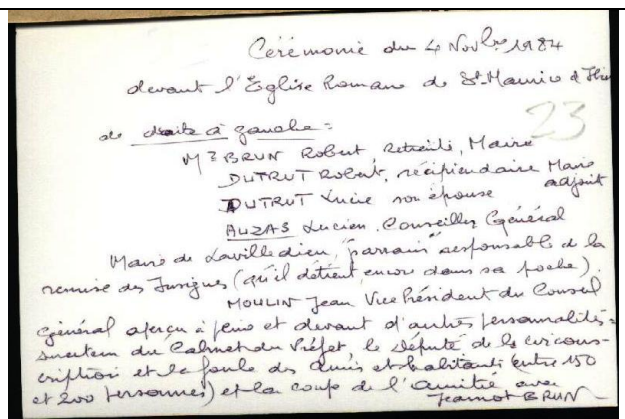 Cérémonie du 4 Novbre 1984
devant l'Eglise Romane de St. Maurice d'Ibie
23
de droite à gauche =
Mr BRUN Robert, retraité, Maire
DUTRUT Robert, récipiendaire Maire adjoint
DUTRUT Lucie son épouse
AUZAS Lucien, Conseiller Général
Maire de Lavilledieu, "parrain" responsable de la
remise des Insignes (qu'il détient encore dans sa poche).
MOULIN Jean Vice Président du Conseil
Général aperçu à peine et devant d'autres personnalités =
du Cabinet du Préfet le député de la circons-
cription et la foule des amis et habitants (entre 150
et 200 personnes) et la coupe de l'amitié avec
Jeannot BRUN